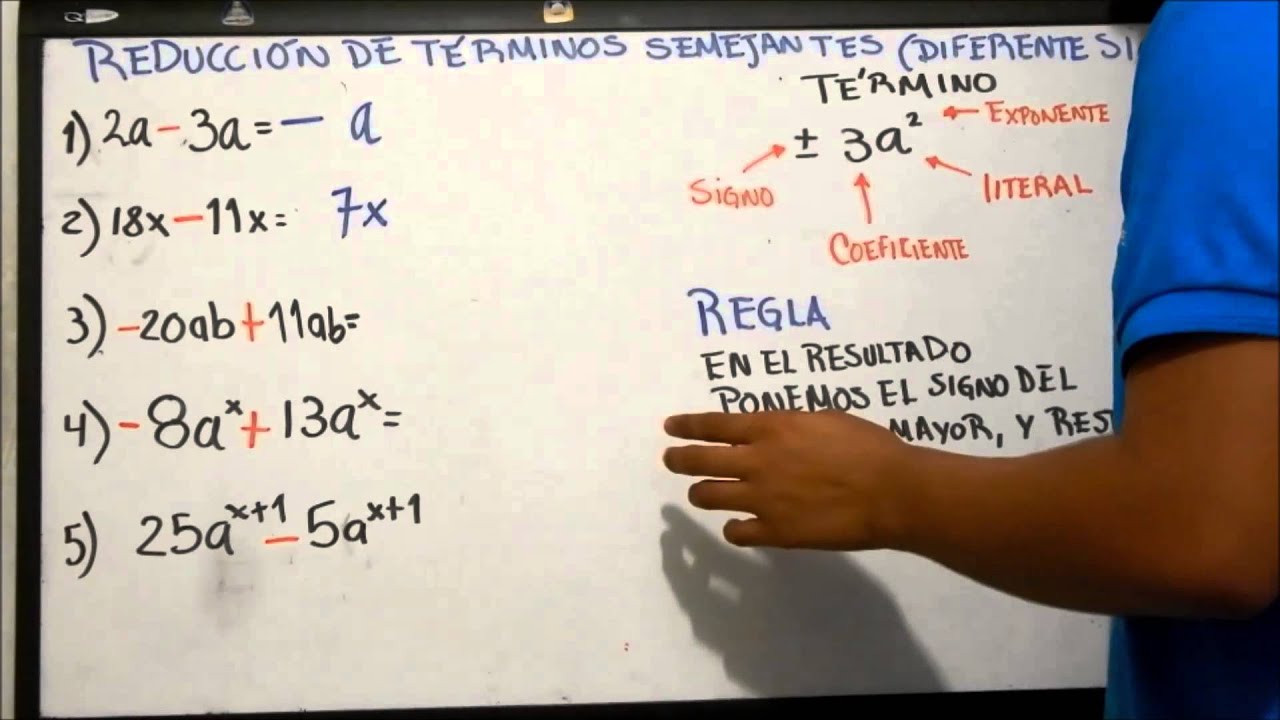 REDUCCIÓN DE TÉRMINOS SEMEJANTES (DIFERENTE SI
1) 2a - 3a = - a
2) 18x - 11x = 7x
3) -20ab + 11ab =
4) -8aˣ + 13aˣ =
5) 25aˣ⁺¹ - 5aˣ⁺¹
TÉRMINO
± 3a²
EXPONENTE
SIGNO
LITERAL
COEFICIENTE
REGLA
EN EL RESULTADO
PONEMOS EL SIGNO DEL
MAYOR, Y RES